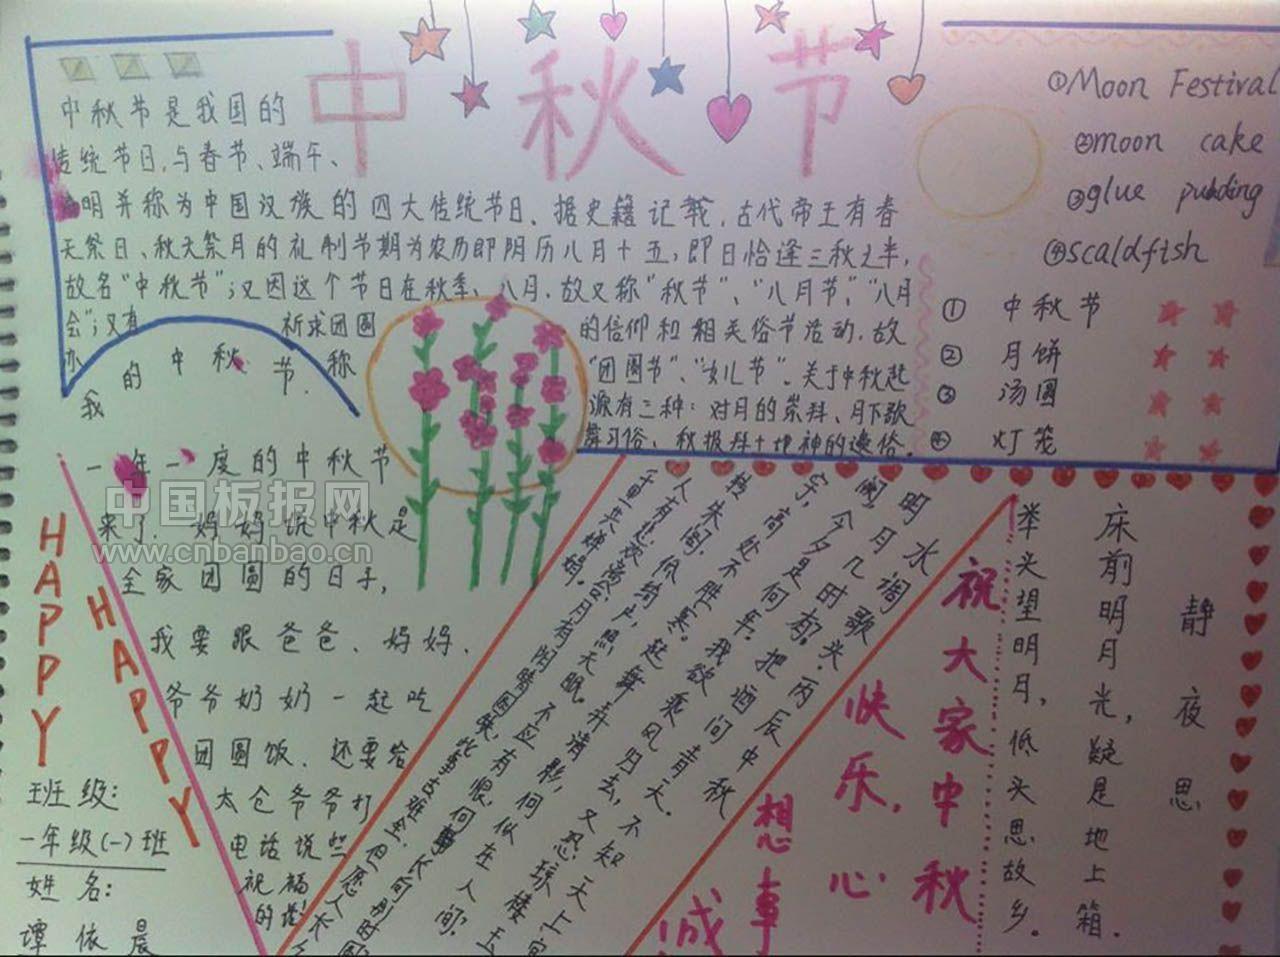 中秋节
中秋节是我国的
传统节日,与春节、端午、
明并称为中国汉族的四大传统节日。据史籍记载,古代帝王有春
天祭日、秋天祭月的礼制节期为农历即阴历八月十五,即日恰逢三秋之半,
故名“中秋节”;又因这个节日在秋季、八月,故又称“秋节”、“八月节”、“八月
会”;又有祈求团圆的信仰和相关俗节活动,故
亦称“团圆节”、“女儿节”。关于中秋起
源有三种:对月的崇拜、月下歌
舞习俗、秋报拜土地神的遗俗。
我的中秋节
①Moon Festival
②moon cake
③glue pudding
④scaldfish
① 中秋节
② 月饼
③ 汤圆
④ 灯笼
一年一度的中秋节
来了,妈妈说中秋是
全家团圆的日子,
我要跟爸爸、妈妈、
爷爷奶奶一起吃
团圆饭,还要给
太仓爷爷打
电话说些
祝福
的话!
HAPPY
HAPPY
班级:
一年级(一)班
姓名:
谭依晨
水调歌头·丙辰中秋
明月几时有?把酒问青天。
不知天上宫
阙,今夕是何年。我欲乘风归去,又恐琼楼玉
宇,高处不胜寒。起舞弄清影,何似在人间?
转朱阁,低绮户,照无眠。不应有恨,何事长向别时圆?
人有悲欢离合,月有阴晴圆缺,此事古难全。但愿人长久
千里共婵娟。
祝大家中秋
快乐,心
想事
成
静夜思
床前明月光,疑是地上箱。
举头望明月,低头思故乡。
中国板报网
www.cnbanbao.cn